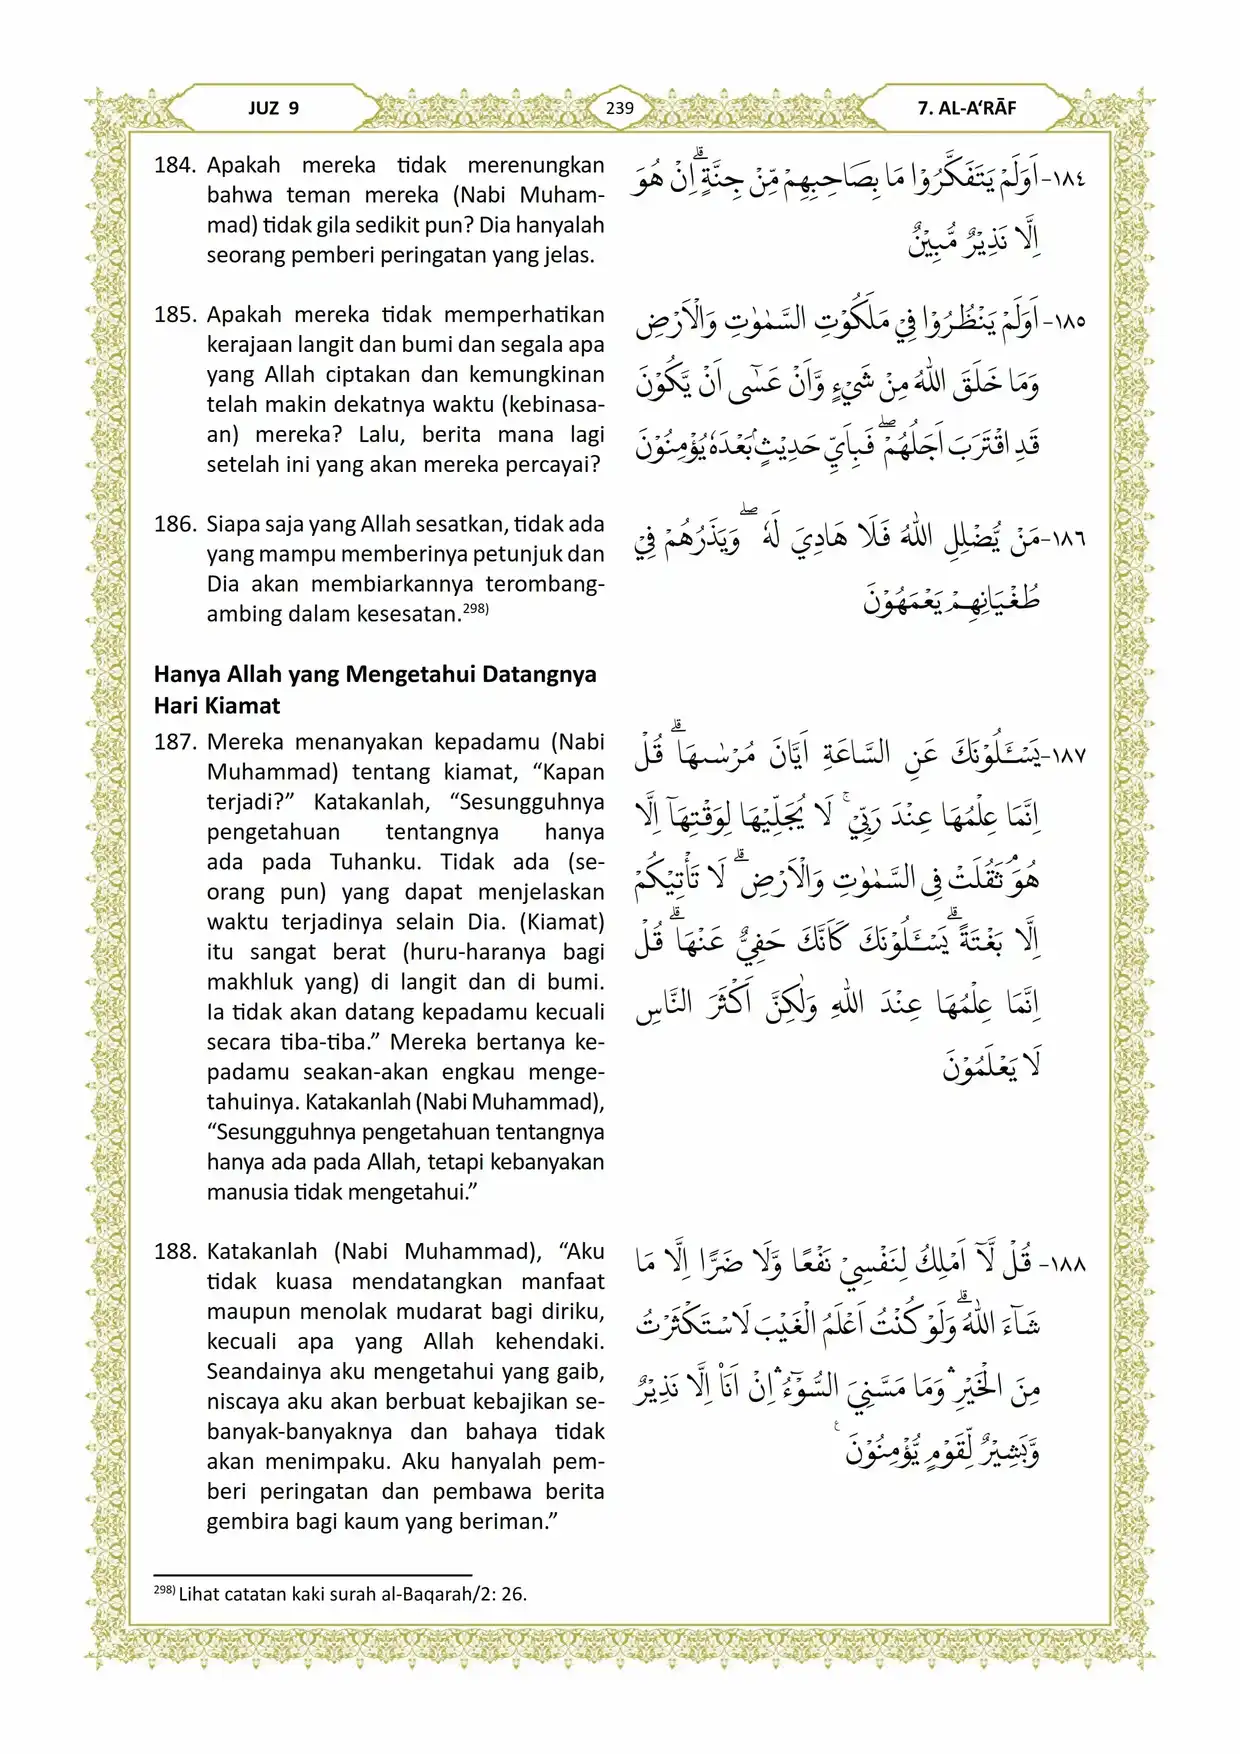 JUZ 9
239
7. AL-A‘RĀF
184. Apakah mereka tidak merenungkan
bahwa teman mereka (Nabi Muham-
mad) tidak gila sedikit pun? Dia hanyalah
seorang pemberi peringatan yang jelas.
١٨٤- اَوَلَمْ يَتَفَكَّرُوْا مَا بِصَاحِبِهِمْ مِّنْ جِنَّةٍۗ اِنْ هُوَ
اِلَّا نَذِيْرٌ مُّبِيْنٌ
185. Apakah mereka tidak memperhatikan
kerajaan langit dan bumi dan segala apa
yang Allah ciptakan dan kemungkinan
telah makin dekatnya waktu (kebinasa-
an) mereka? Lalu, berita mana lagi
setelah ini yang akan mereka percayai?
١٨٥- اَوَلَمْ يَنْظُرُوْا فِيْ مَلَكُوْتِ السَّمٰوٰتِ وَالْاَرْضِ
وَمَا خَلَقَ اللّٰهُ مِنْ شَيْءٍ وَّاَنْ عَسٰٓى اَنْ يَّكُوْنَ
قَدِ اقْتَرَبَ اَجَلُهُمْۖ فَبِاَيِّ حَدِيْثٍۢ بَعْدَهٗ يُؤْمِنُوْنَ
186. Siapa saja yang Allah sesatkan, tidak ada
yang mampu memberinya petunjuk dan
Dia akan membiarkannya terombang-
ambing dalam kesesatan.298)
١٨٦- مَنْ يُّضْلِلِ اللّٰهُ فَلَا هَادِيَ لَهٗ ۖ وَيَذَرُهُمْ فِيْ
طُغْيَانِهِمْ يَعْمَهُوْنَ
Hanya Allah yang Mengetahui Datangnya
Hari Kiamat
187. Mereka menanyakan kepadamu (Nabi
Muhammad) tentang kiamat, “Kapan
terjadi?” Katakanlah, “Sesungguhnya
pengetahuan tentangnya hanya
ada pada Tuhanku. Tidak ada (se-
orang pun) yang dapat menjelaskan
waktu terjadinya selain Dia. (Kiamat)
itu sangat berat (huru-haranya bagi
makhluk yang) di langit dan di bumi.
Ia tidak akan datang kepadamu kecuali
secara tiba-tiba.” Mereka bertanya ke-
padamu seakan-akan engkau menge-
tahuinya. Katakanlah (Nabi Muhammad),
“Sesungguhnya pengetahuan tentangnya
hanya ada pada Allah, tetapi kebanyakan
manusia tidak mengetahui.”
١٨٧- يَسْـَٔلُوْنَكَ عَنِ السَّاعَةِ اَيَّانَ مُرْسٰىهَاۗ قُلْ
اِنَّمَا عِلْمُهَا عِنْدَ رَبِّيْۚ لَا يُجَلِّيْهَا لِوَقْتِهَآ اِلَّا
هُوَۘ ثَقُلَتْ فِى السَّمٰوٰتِ وَالْاَرْضِۗ لَا تَأْتِيْكُمْ
اِلَّا بَغْتَةًۗ يَسْـَٔلُوْنَكَ كَاَنَّكَ حَفِيٌّ عَنْهَاۗ قُلْ
اِنَّمَا عِلْمُهَا عِنْدَ اللّٰهِ وَلٰكِنَّ اَكْثَرَ النَّاسِ
لَا يَعْلَمُوْنَ
188. Katakanlah (Nabi Muhammad), “Aku
tidak kuasa mendatangkan manfaat
maupun menolak mudarat bagi diriku,
kecuali apa yang Allah kehendaki.
Seandainya aku mengetahui yang gaib,
niscaya aku akan berbuat kebajikan se-
banyak-banyaknya dan bahaya tidak
akan menimpaku. Aku hanyalah pem-
beri peringatan dan pembawa berita
gembira bagi kaum yang beriman.”
١٨٨- قُلْ لَّآ اَمْلِكُ لِنَفْسِيْ نَفْعًا وَّلَا ضَرًّا اِلَّا مَا
شَاۤءَ اللّٰهُۗ وَلَوْ كُنْتُ اَعْلَمُ الْغَيْبَ لَاسْتَكْثَرْتُ
مِنَ الْخَيْرِۛ وَمَا مَسَّنِيَ السُّوْۤءُۛ اِنْ اَنَا۠ اِلَّا نَذِيْرٌ
وَّبَشِيْرٌ لِّقَوْمٍ يُّؤْمِنُوْنَ ࣖ
298) Lihat catatan kaki surah al-Baqarah/2: 26.